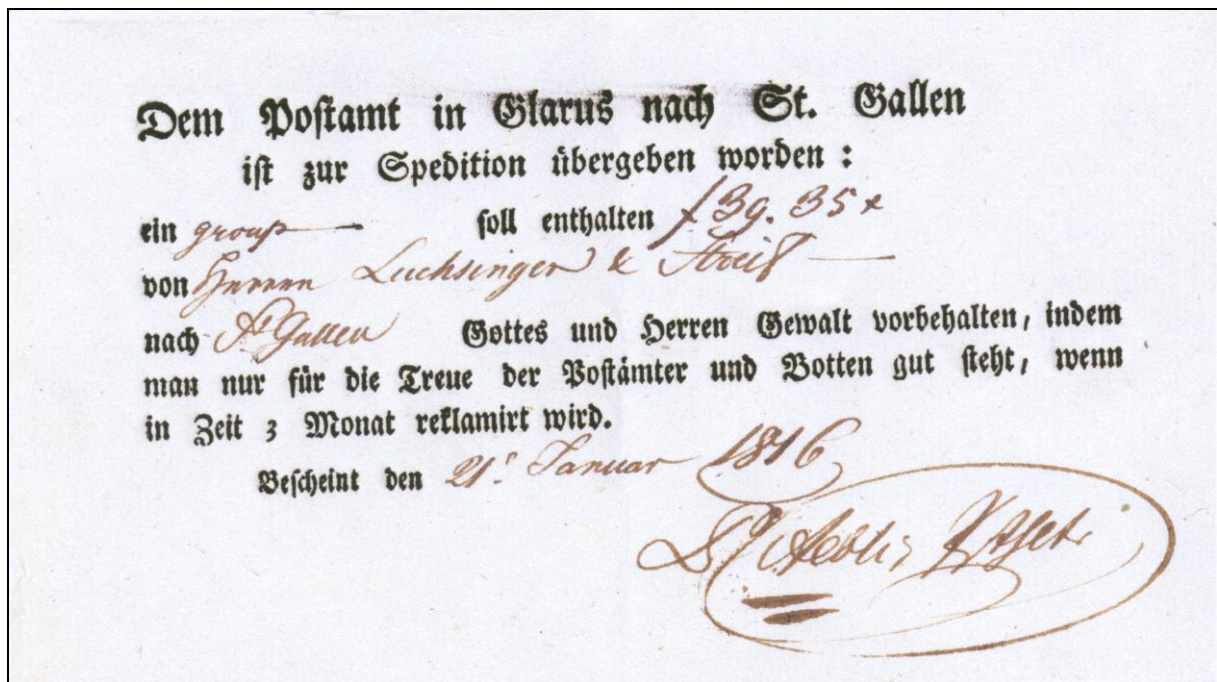 Dem Postamt in Glarus nach St. Gallen
ist zur Spedition übergeben worden :
ein group soll enthalten f 39. 35 x
von Herren Luchsinger & Streiff
nach St Gallen Gottes und Herren Gewalt vorbehalten, indem
man nur für die Treue der Postämter und Botten gut steht, wenn
in Zeit 3 Monat reklamirt wird.
Bescheint den 21t Januar 1816
Aebli